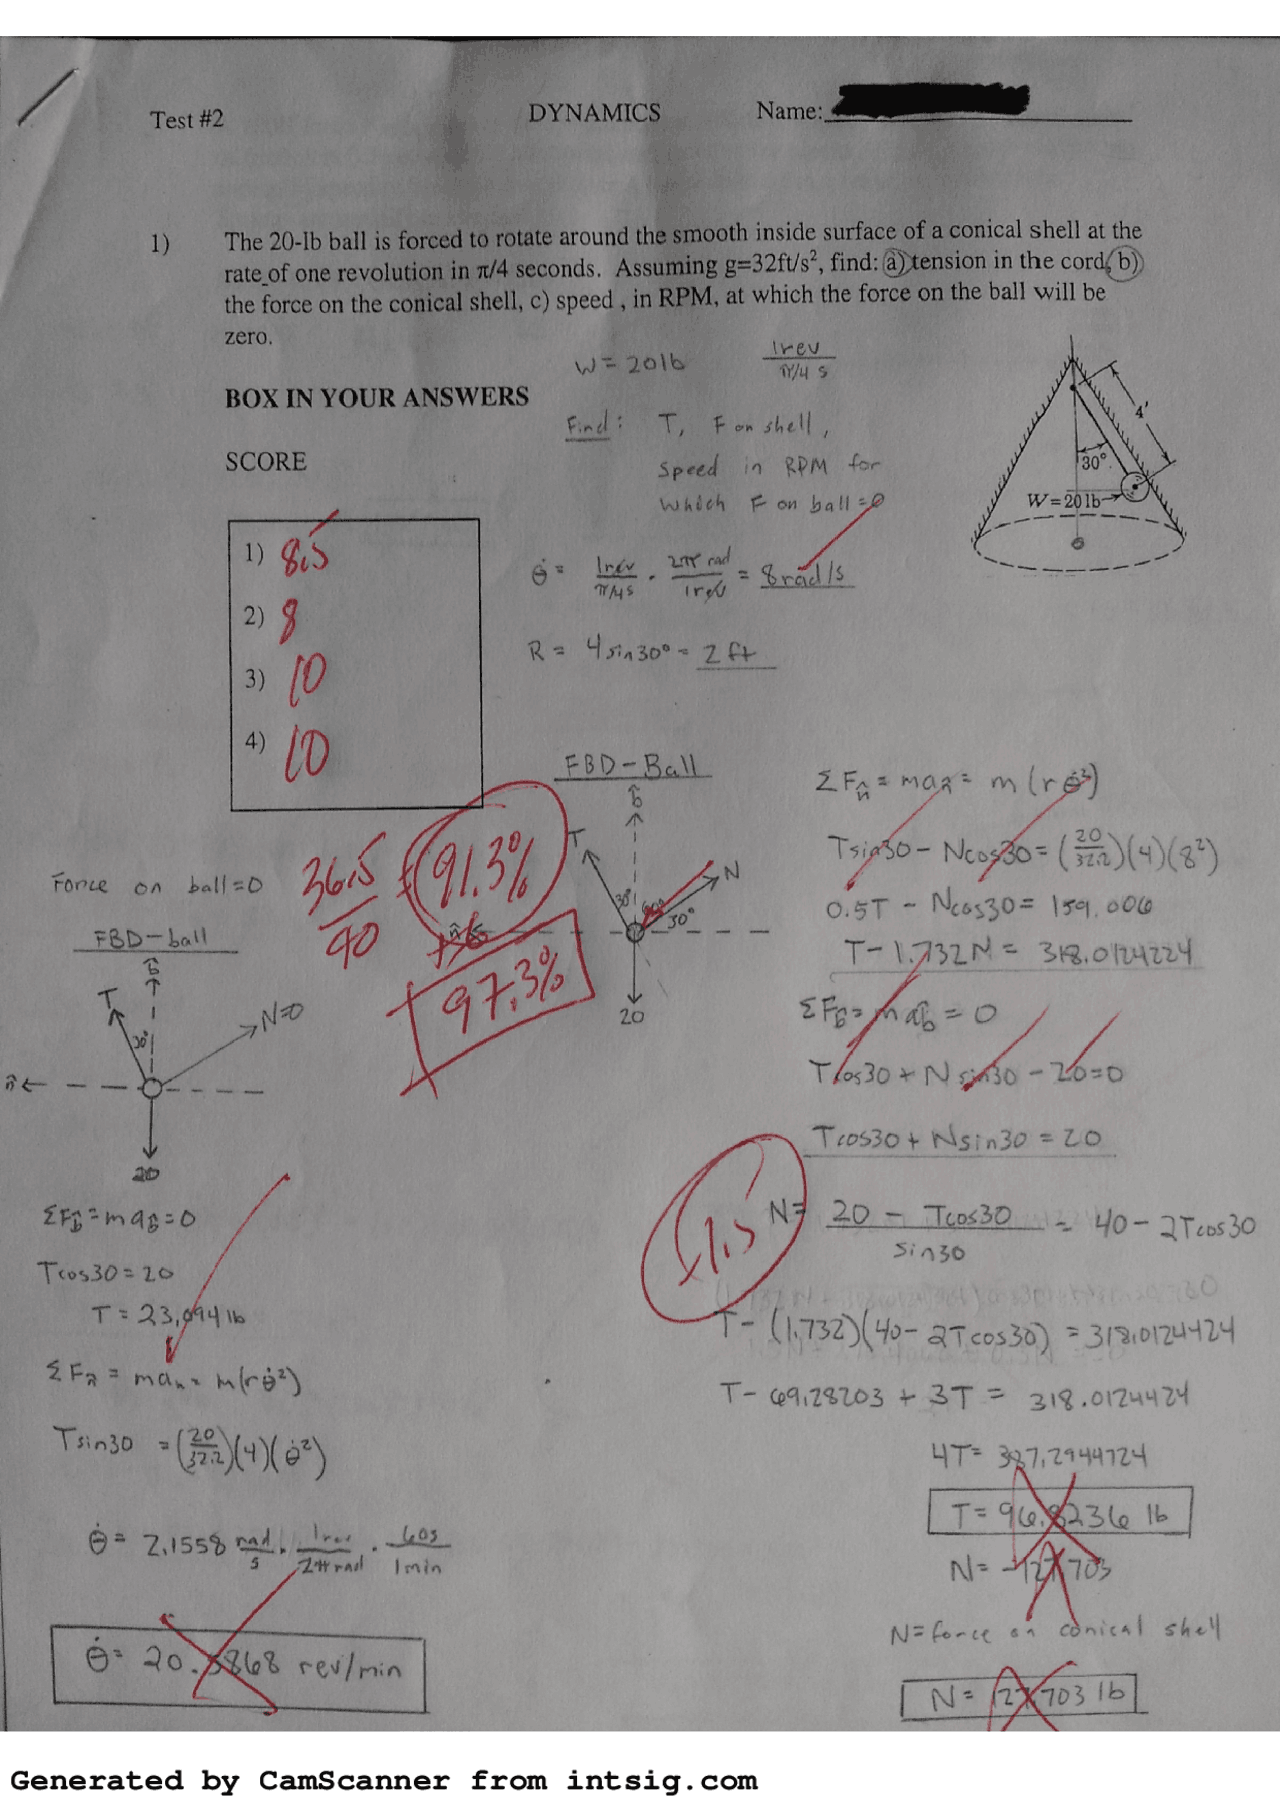 Test #2 DYNAMICS Name:
1) The 20-lb ball is forced to rotate around the smooth inside surface of a conical shell at the
rate of one revolution in π/4 seconds. Assuming g=32ft/s², find: a) tension in the cord, b)
the force on the conical shell, c) speed , in RPM, at which the force on the ball will be
zero.
W = 20lb 1rev/π/4 s
BOX IN YOUR ANSWERS
Find: T, F on shell,
Speed in RPM for
Which F on ball = 0
4'
30°
W = 20 lb
SCORE
1) 8.5
2) 8
3) 10
4) 10
θ̇ = 1rev/π/4s · 2π rad/1rev = 8 rad/s
R = 4sin30° = 2 ft
36.5/40 = 91.3%
+6
97.3%
FBD-Ball
b̂
T
N
30°
60°
30°
n̂
20
ΣFn̂ = man̂ = m(rθ̇²)
Tsin30 - Ncos30 = (20/32.2)(4)(8²)
0.5T - Ncos30 = 159.006
T - 1.732N = 318.0124224
ΣFb̂ = mab̂ = 0
Tcos30 + Nsin30 - 20 = 0
Tcos30 + Nsin30 = 20
-1.5
N = 20 - Tcos30/sin30 = 40 - 2Tcos30
T - (1.732)(40 - 2Tcos30) = 318.0124424
T - 69.28203 + 3T = 318.0124424
4T = 387.2944724
T = 96.8236 lb
N = -127.703
N = force on conical shell
N = 127.703 lb
Force on ball = 0
FBD-ball
b̂
T
30°
N=0
n̂
20
ΣFb̂ = mab̂ = 0
Tcos30 = 20
T = 23.094 lb
ΣFn̂ = man = m(rθ̇²)
Tsin30 = (20/32.2)(4)(θ̇²)
θ̇ = 2.1558 rad/s · 1rev/2π rad · 60s/1min
θ̇ = 20.5868 rev/min
Generated by CamScanner from intsig.com